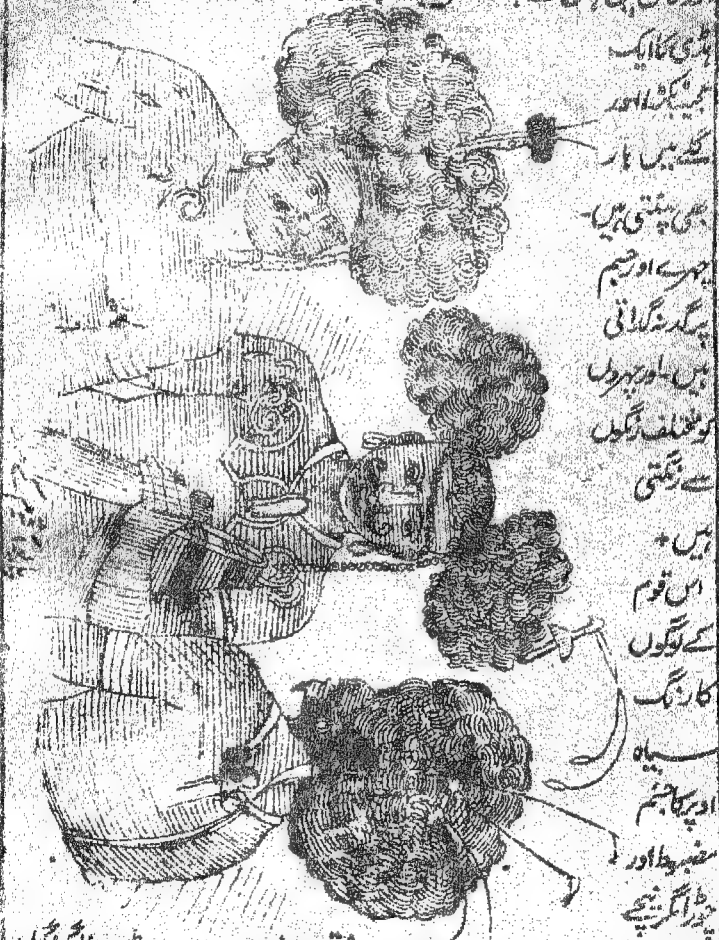 ہڈی کا ایک
ٹکڑا اور
گلے میں ہار
بھی پہنتی ہیں۔
چہرے اور جسم
پر گدنے گداتی
ہیں۔ اور پھروں
کو مختلف رنگوں
سے رنگتی
ہیں +
اس قوم
کے لوگوں
کا رنگ
سیاہ
اوپر کا جسم
مضبوط اور
چوڑا مگر نیچے